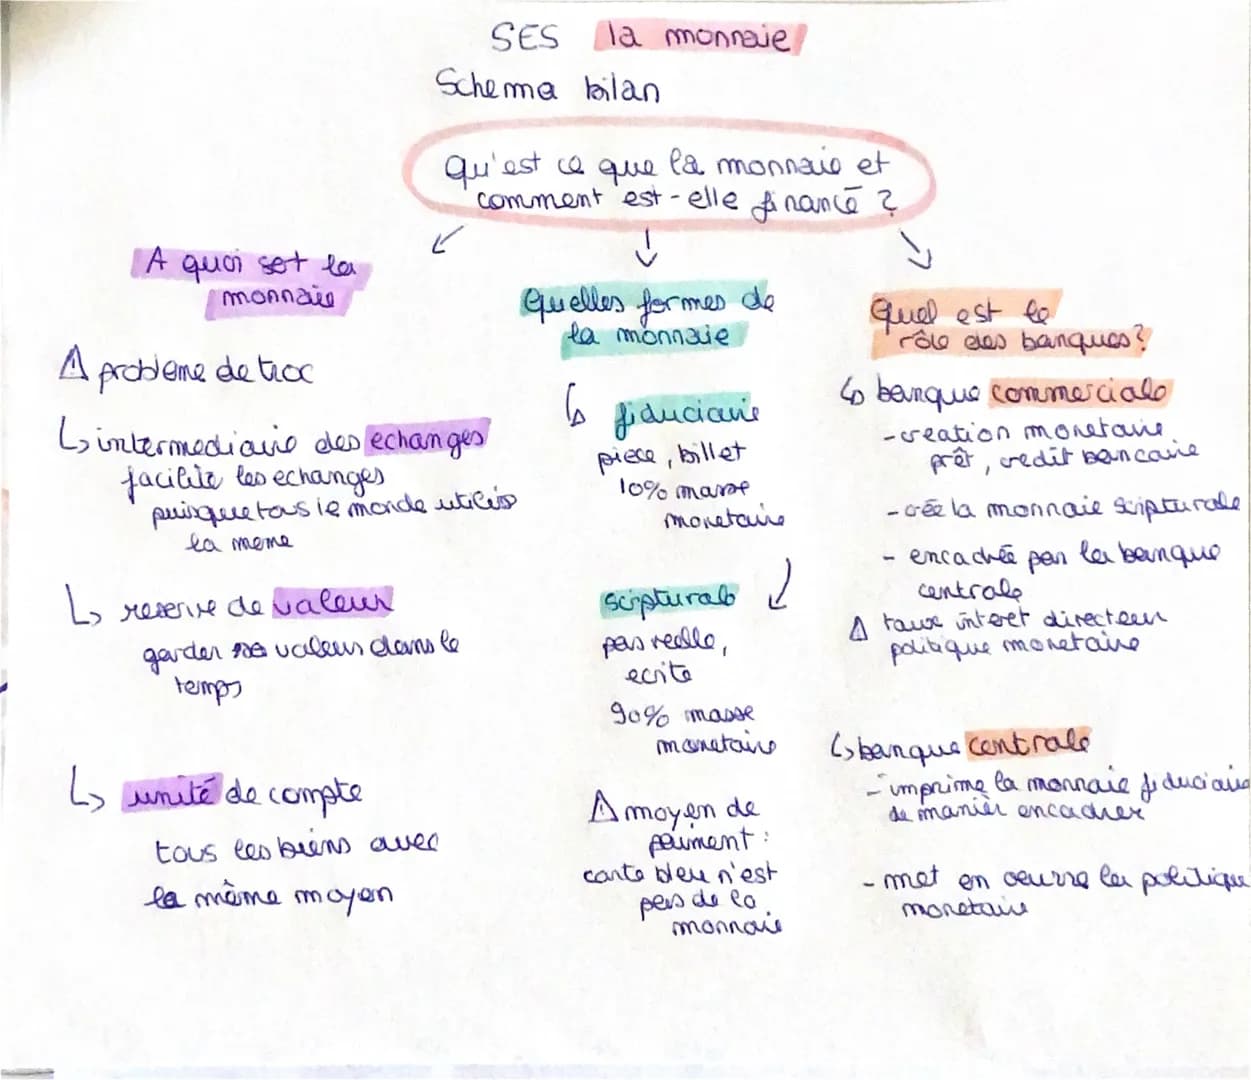 SES la monnaie
Schema bilan
Qu'est ce que la monnaie et
comment est-elle financé ?
A quoi set la
monnaie
⚠ probleme de troc
↳ intermediaire des echanges
facilite les echanges
puisque tous le monde utilise
la meme
↳ reserve de valeur
garder sa valeur dans le
temps
↳ unité de compte
tous les biens avec
le même moyen
Quelles formes de
la monnaie
↳ fiduciaire
piece, billet
10% masse
monetaire
scripturale
pas reelle,
ecrite
90% masse
monetaire
⚠ moyen de
paiment :
carte bleu n'est
pas de la
monnaie
Quel est le
rôle des banques ?
↳ banque commerciale
- creation monetaire
prêt, credit bancaire
- crée la monnaie scripturale
- encadrée par la banque
centrale
⚠ taux interet directeur
politique monetaire
↳ banque centrale
- imprime la monnaie fiduciaire
de manièr encadrer
- met en oeuvre la politique
monetaire